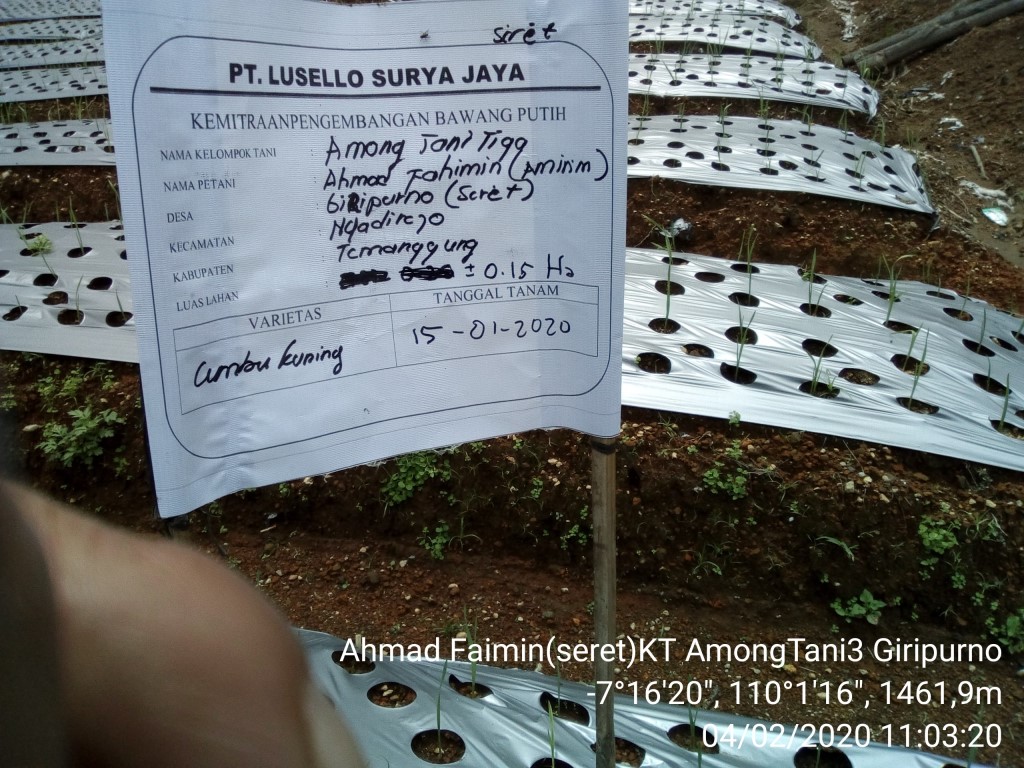 siret
PT. LUSELLO SURYA JAYA
KEMITRAANPENGEMBANGAN BAWANG PUTIH
NAMA KELOMPOK TANI Among Tani Tiga
NAMA PETANI Ahmad Fahimin (Aminim)
DESA Giripurno (Seret)
KECAMATAN Ngadirejo
KABUPATEN Temanggung
LUAS LAHAN ± 0.15 Ha
VARIETAS TANGGAL TANAM
Lumbu Kuning 15-01-2020
Ahmad Faimin(seret)KT AmongTani3 Giripurno
-7°16'20", 110°1'16", 1461,9m
04/02/2020 11:03:20